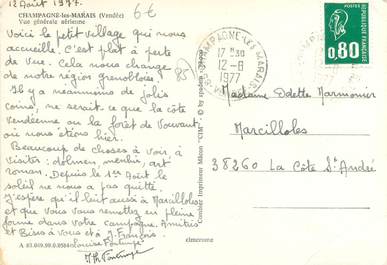 12 Août 1977.
CHAMPAGNE-les-MARAIS (Vendée)
Vue générale aérienne
6€
Voici le petit village qui nous
accueille. C'est plat à perte
de vue. Cela nous change
de notre région grenobloise.
Il y a néanmoins de jolis
coins, ne serait-ce que la côte
Vendéenne ou la forêt de Vouvant
où nous étions hier.
Beaucoup de choses à voir, à
visiter : dolmen, menhir, art
roman. Depuis le 1er Août le
soleil ne nous a pas quitté.
J'espère qu'il luit aussi à Marcilloles
et que vous vous remettez en pleine
forme dans votre campagne. Amitiés
et Bises à vous et à J. François.
A 83.069.99.0.0584
85
Combier Imprimeur Mâcon "CIM"
CHAMPAGNE LES MARAIS
17 H 30
12-8
1977
0,80
REPUBLIQUE FRANÇAISE
POSTES
Madame Odette Marmonier
Marcilloles
38260 La Côte St André